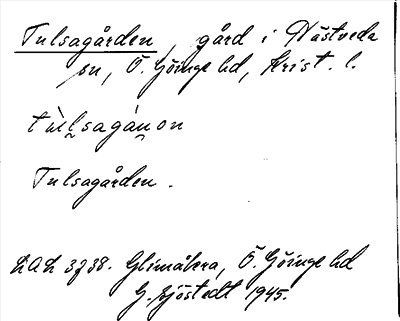 Tulsagården, gård i Hästveda
sn, Ö. Göinge hd, Krist. l.
Tulsagården.
LAL 3738. Glimåkra, Ö. Göinge hd
G. Sjöstedt 1945.